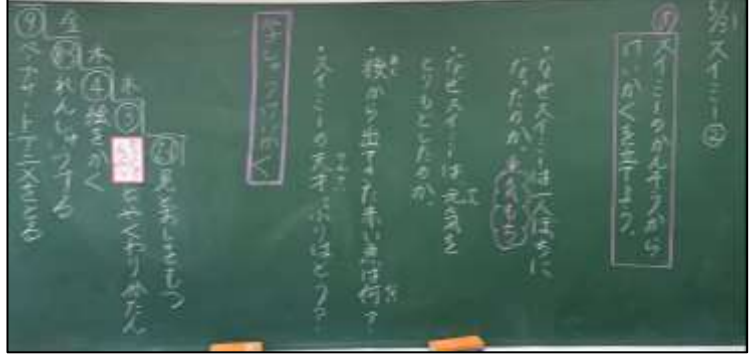 5/23 スイミー②
スイミーのかんそうから
けいかくを立てよう。
・なぜスイミーは一人ぼっちに
なったのか。気もち
・なぜスイミーは元気を
とりもどしたのか。
・後から出てきた赤い点は何？
・スイミーの天才っぷりはどう？
学しゅうけいかく
見とおしをもつ
木③ とやくわりぶたん
木④絵をかく
れんしゅうする
金⑨ペープサートアニメをとる